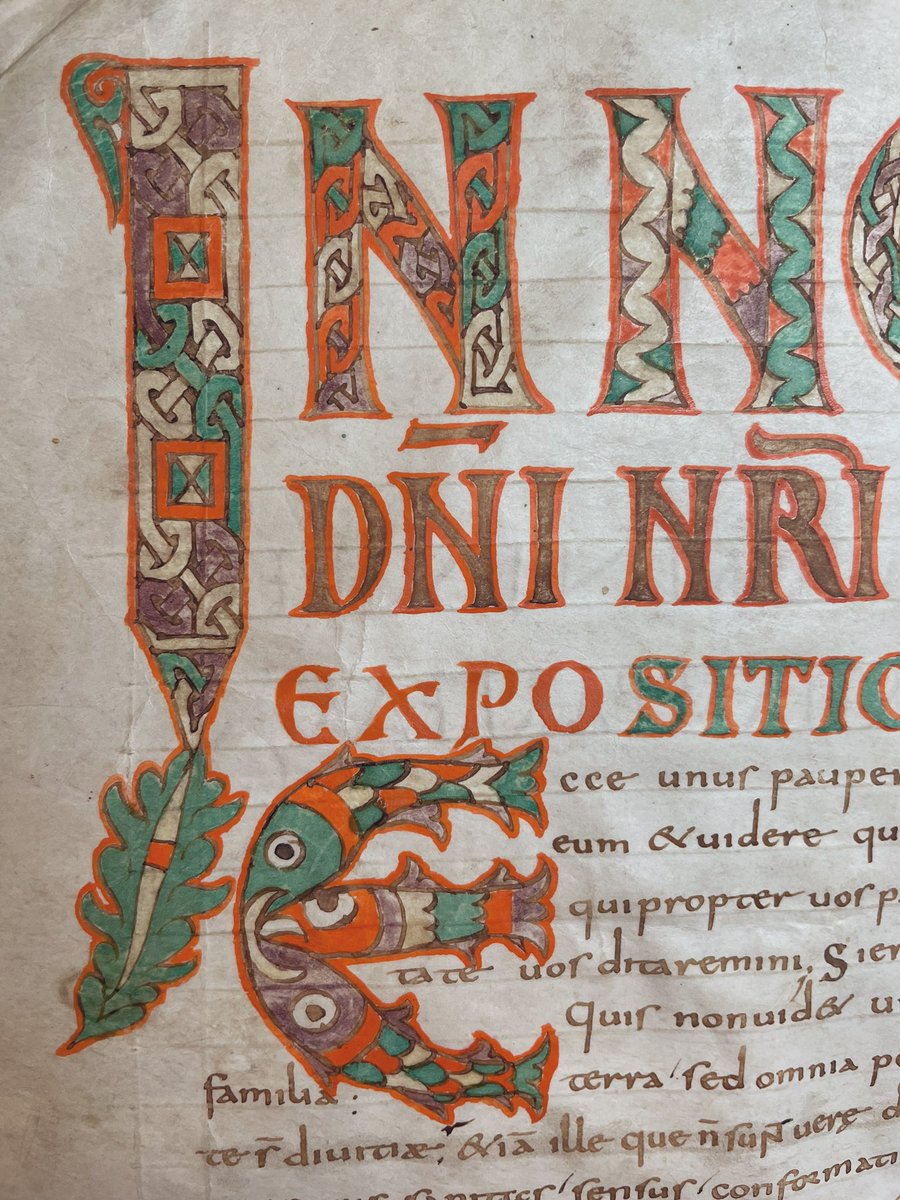 IN NO
DN̄I NR̄I
EXPOSITIO
Ecce unus pauper
eum & uidere qu
qui propter uos p
tate uos ditaremini. Si en
Quis non uid& u
familia. terra sed omnia po
te r̄ diuitiæ, & iā ille que n̄ sup̄ uerę d
sensus conformati